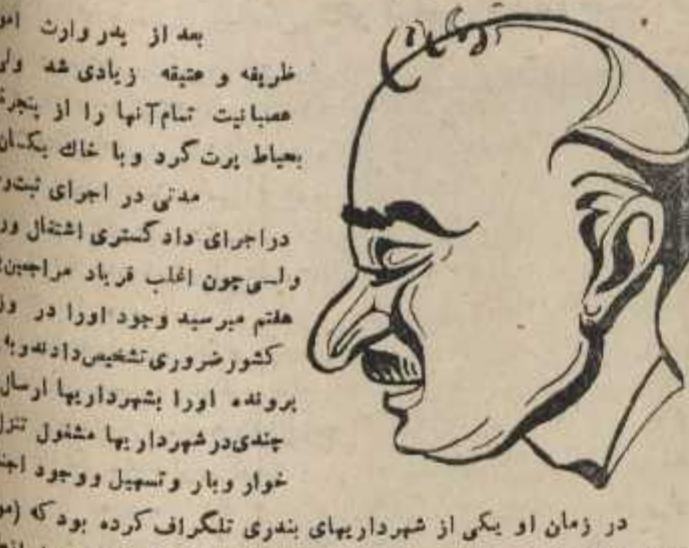 بعد از پدر وارث
ظریفه و عتیقه زیادی شد ولی
عصبانیت تمام آنها را از پنجره
بحیاط پرت کرد و با خاك یکسان
مدتی در اجرای ثبت و
در اجرای دادگستری اشتغال
ولی چون اغلب فریاد مراجعین
هفتم میرسید وجود اورا در
کشور ضروری تشخیص دادند و به
پرونده اورا بشهرداریها ارسال
چندی در شهرداریها مشغول تنزل
خوار و بار و تسهیل و وجود
در زمان او یکی از شهرداریهای بندری تلگراف کرده بود که